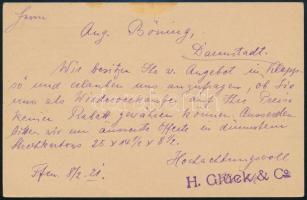 Herrn
Aug. Böning,
Darmstadt.
Wir besitzen Ihr v. Angebot in Klapp
so" und erlauben uns anzufragen, ob Sie
uns als Wiederverkäufer auf Ihre Preise
keinen Rabatt gewähren können. Ausserdem
bitten wir um äusserste Offerte in
25 x 14½ x 8½.
Hochachtungsvoll
Ffm. 8/2. 21.
H. Glück & Co